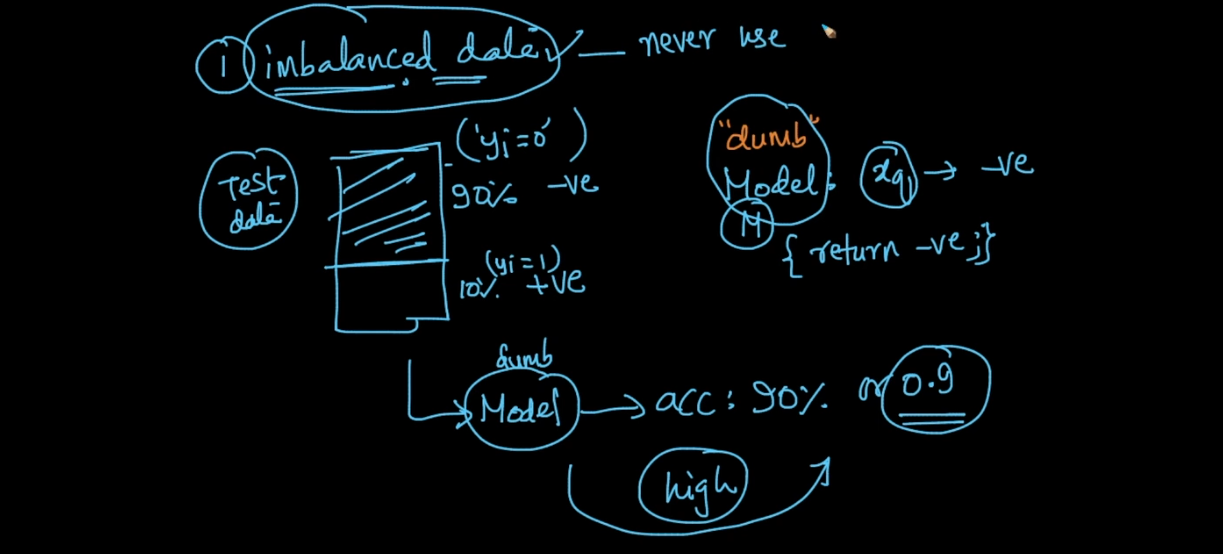 1 imbalanced data — never use
Test
data
('yi=0')
90% -ve
(yi=1)
10% +ve
"dumb"
Model:
M
xq → -ve
{ return -ve;}
dumb
Model → acc: 90% or 0.9
high